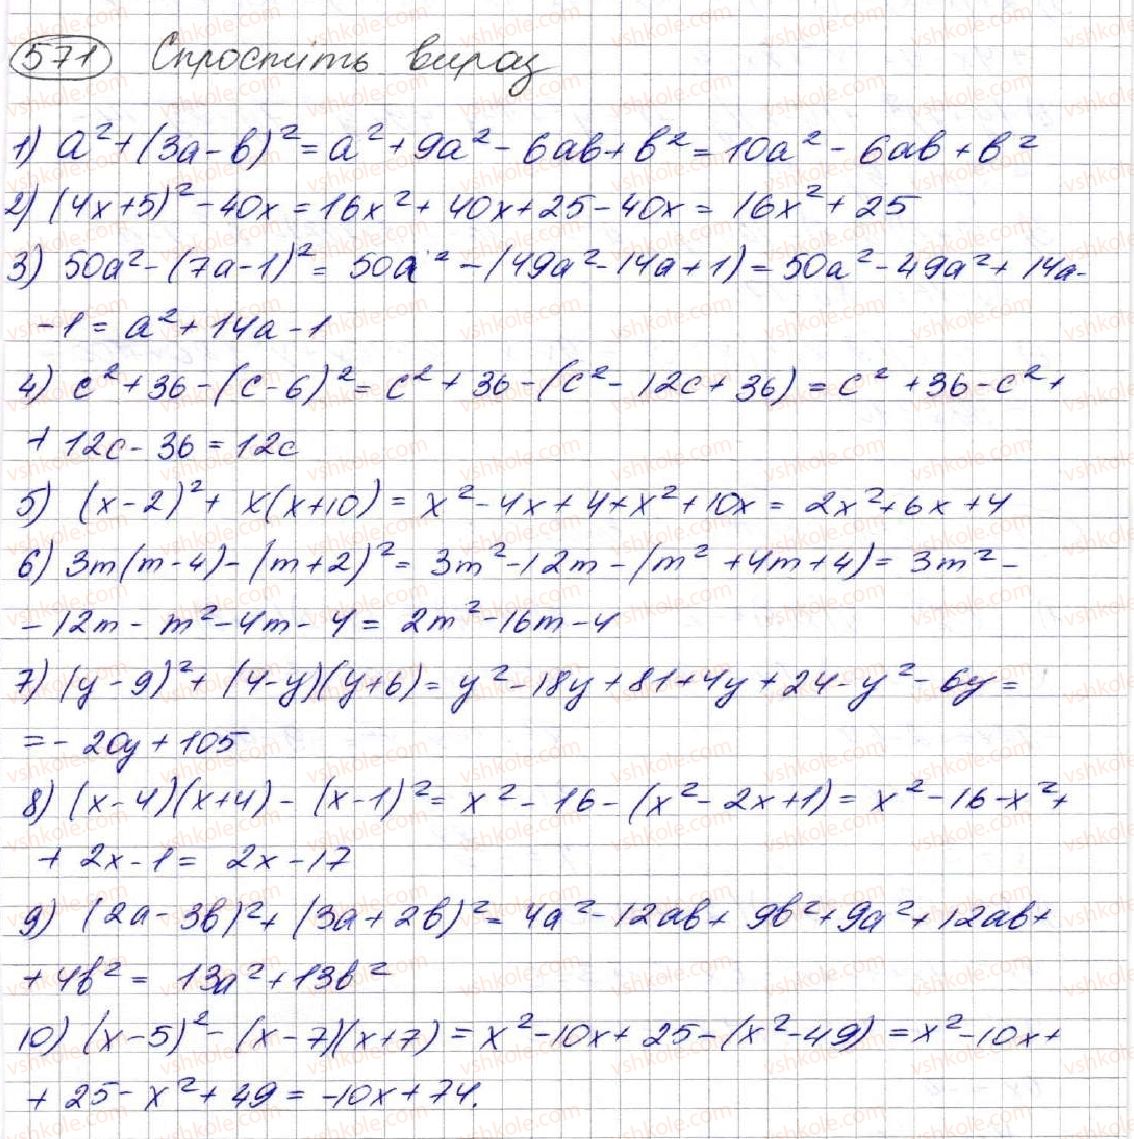 571 Спростіть вираз
1) a² + (3a - b)² = a² + 9a² - 6ab + b² = 10a² - 6ab + b²
2) (4x + 5)² - 40x = 16x² + 40x + 25 - 40x = 16x² + 25
3) 50a² - (7a - 1)² = 50a² - (49a² - 14a + 1) = 50a² - 49a² + 14a -
- 1 = a² + 14a - 1
4) c² + 36 - (c - 6)² = c² + 36 - (c² - 12c + 36) = c² + 36 - c² +
+ 12c - 36 = 12c
5) (x - 2)² + x(x + 10) = x² - 4x + 4 + x² + 10x = 2x² + 6x + 4
6) 3m(m - 4) - (m + 2)² = 3m² - 12m - (m² + 4m + 4) = 3m² -
- 12m - m² - 4m - 4 = 2m² - 16m - 4
7) (y - 9)² + (4 - y)(y + 6) = y² - 18y + 81 + 4y + 24 - y² - 6y =
= - 20y + 105
8) (x - 4)(x + 4) - (x - 1)² = x² - 16 - (x² - 2x + 1) = x² - 16 - x² +
+ 2x - 1 = 2x - 17
9) (2a - 3b)² + (3a + 2b)² = 4a² - 12ab + 9b² + 9a² + 12ab +
+ 4b² = 13a² + 13b²
10) (x - 5)² - (x - 7)(x + 7) = x² - 10x + 25 - (x² - 49) = x² - 10x +
+ 25 - x² + 49 = -10x + 74.